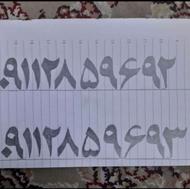 ۰۹۱۱۲۸۵۹۶۹۲
۰۹۱۱۲۸۵۹۶۹۳